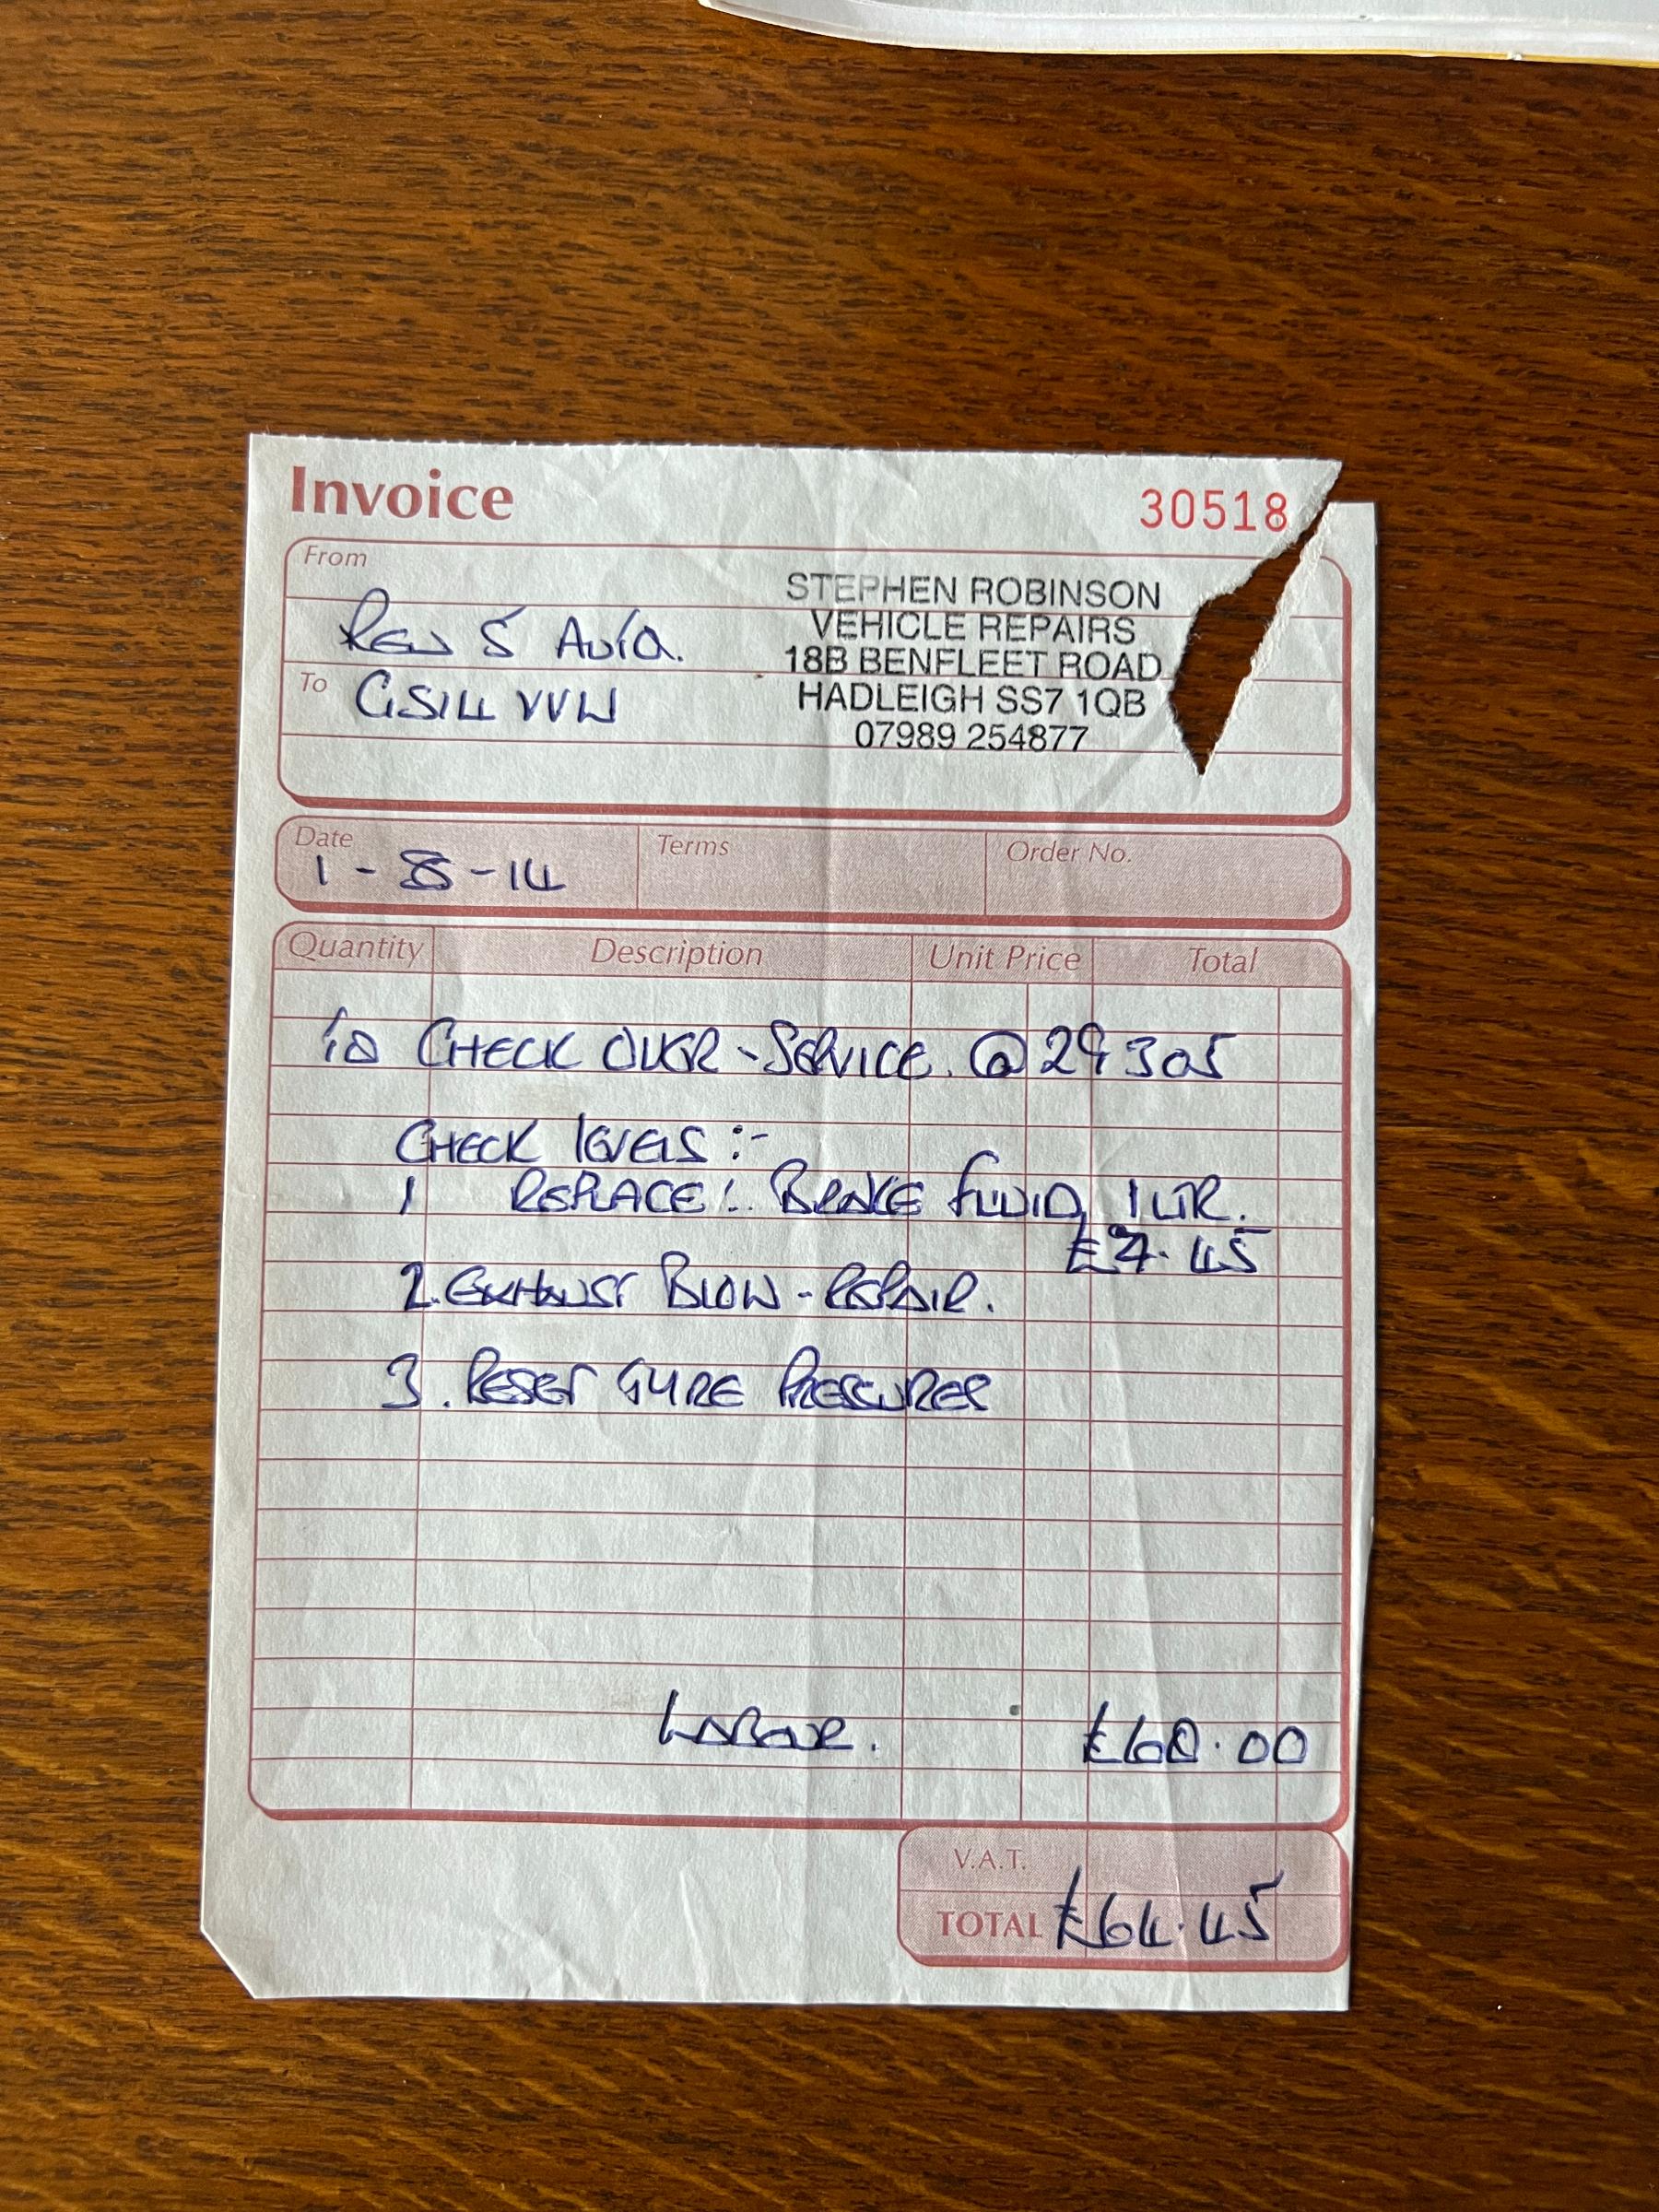 Invoice
30518
From
STEPHEN ROBINSON
VEHICLE REPAIRS
18B BENFLEET ROAD
HADLEIGH SS7 1QB
07989 254877
5 AUTO.
To
Date
1-8-14
Terms
Order No.
Quantity Description Unit Price Total
TO CHECK OVER - SERVICE. @ 29305
CHECK LEVELS :-
1 REPLACE :. BRAKE FLUID, 1 LTR.
2. EXHAUST BLOW - REPAIR.
3. RESET TYRE PRESSURES
LABOUR. £60.00
V.A.T.
TOTAL £64.45